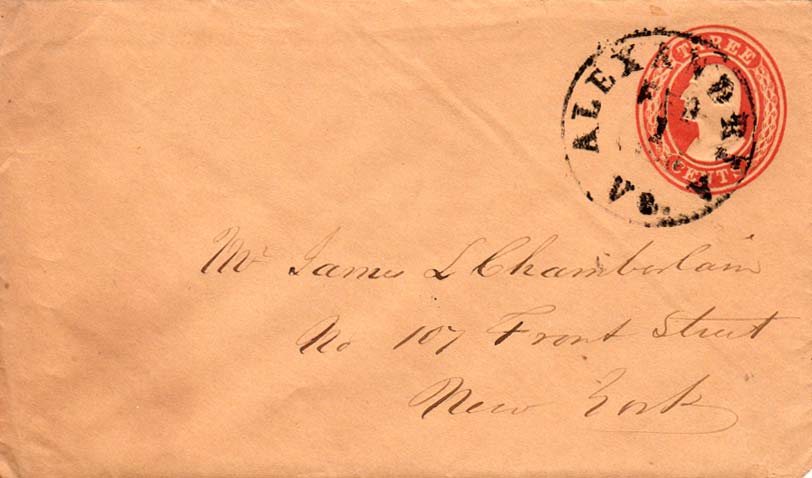 THREE
CENTS
ALEXANDRIA
Va.
Mr James L Chamberlain
No 107 Front Street
New York